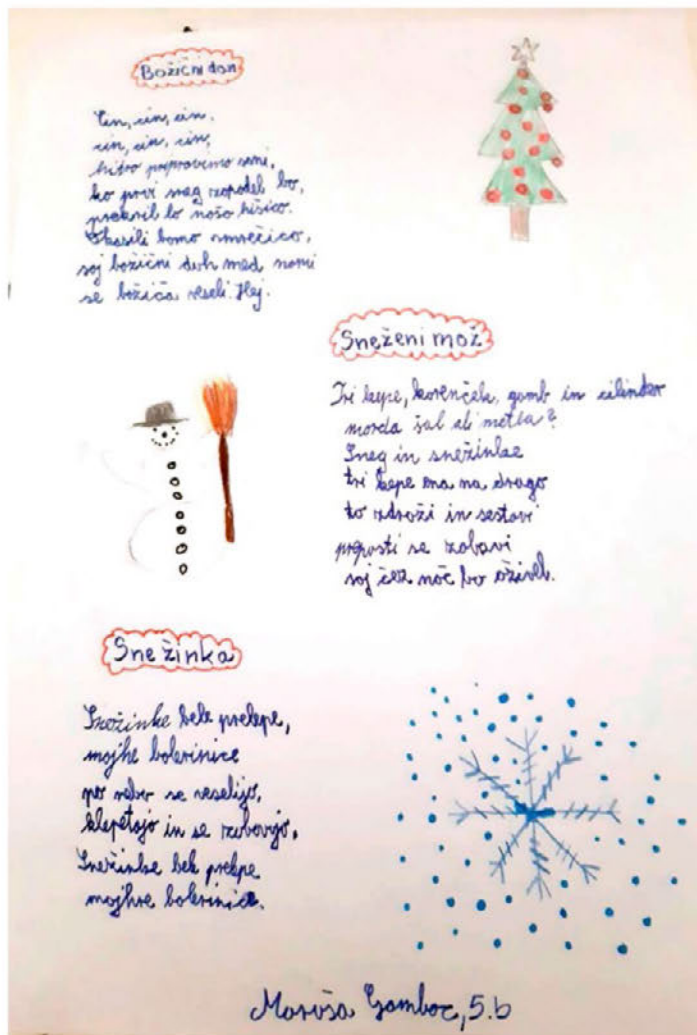 Božični dan
Cin, cin, cin,
cin, cin, cin,
hitro pripravimo sani,
ko prvi sneg zapadel bo,
prekril bo našo hišico.
Okrasili bomo smrečico,
saj božični duh med nami
se božiča veseli. Hej.
Sneženi mož
Tri kepe, korenčela, gumb in cilinder
morda šal ali metla?
Sneg in snežinke
tri kepe ena na drugo
to združi in sestavi
prepusti se zabavi
saj čez noč bo oživel.
Snežinka
Snežinke bele prelepe,
majhe balerinice
po nebu se veselijo,
klepetajo in se zabavajo,
Snežinke bele prelepe
majhne balerinice.
Maruša Gamboc, 5.b